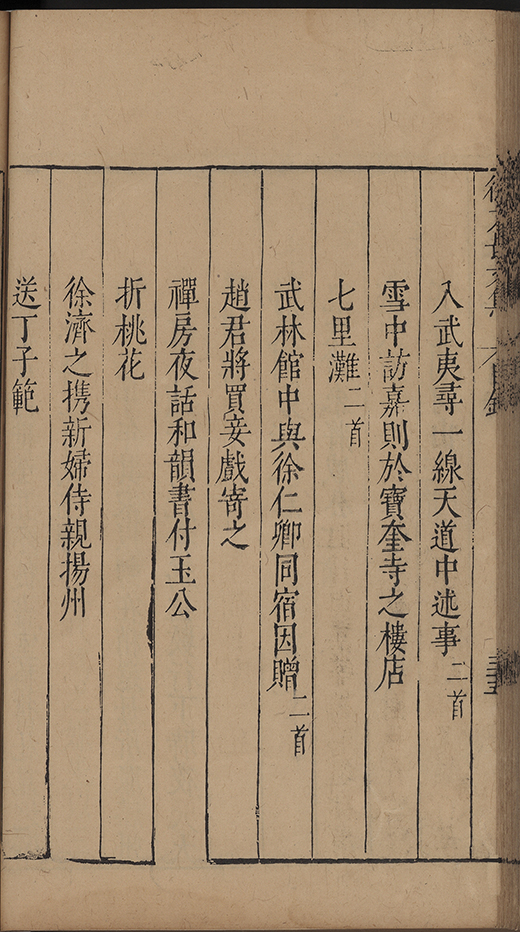 入武夷尋一線天道中述事二首
雪中訪嘉則於寶奎寺之樓店
七里灘二首
武林館中與徐仁卿同宿因贈二首
趙君將買妾戲寄之
禪房夜話和韻書付玉公
折桃花
徐濟之携新婦侍親揚州
送丁子範